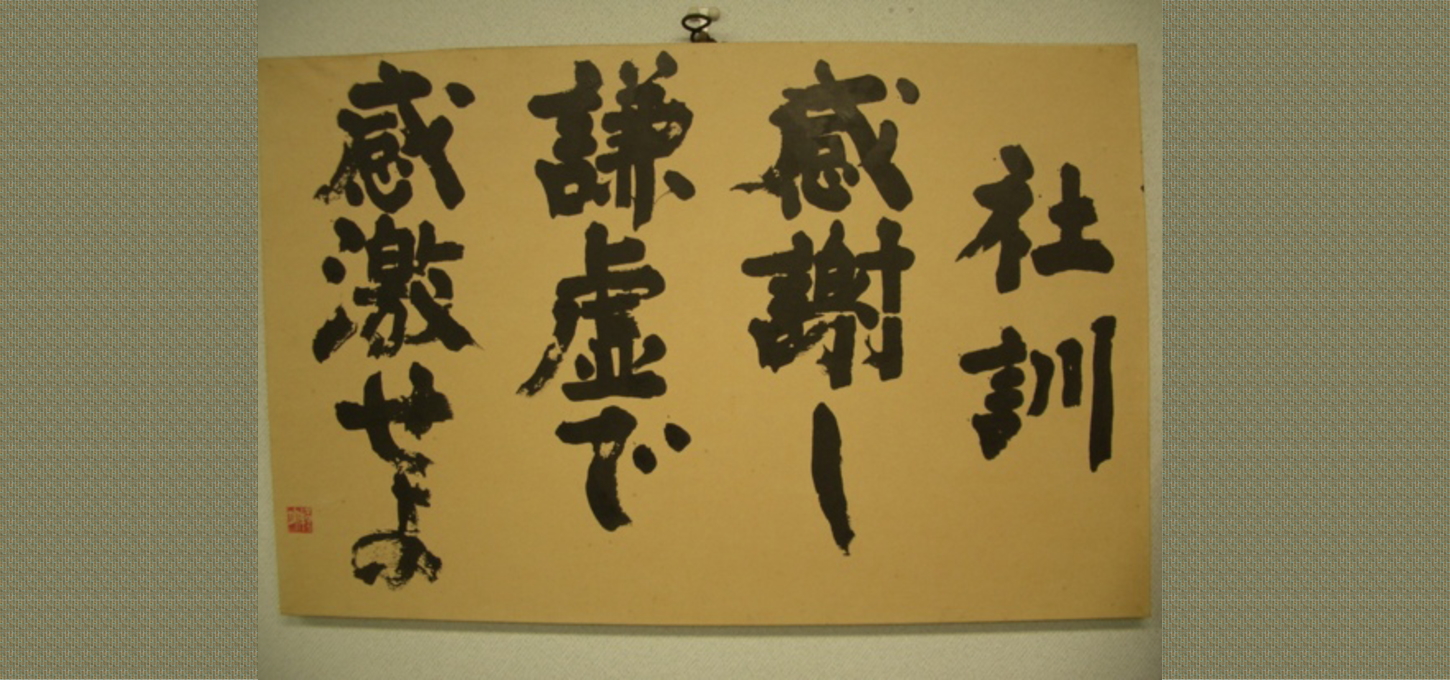 社訓
感謝し
謙虚で
感激せよ